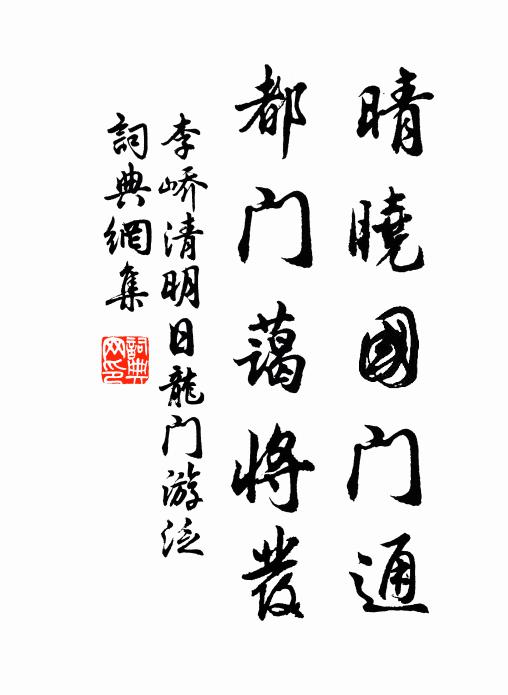 晴曉國门通
都门藹將發
李嶠清明日龍门游泛
詞典網集
詞典网印